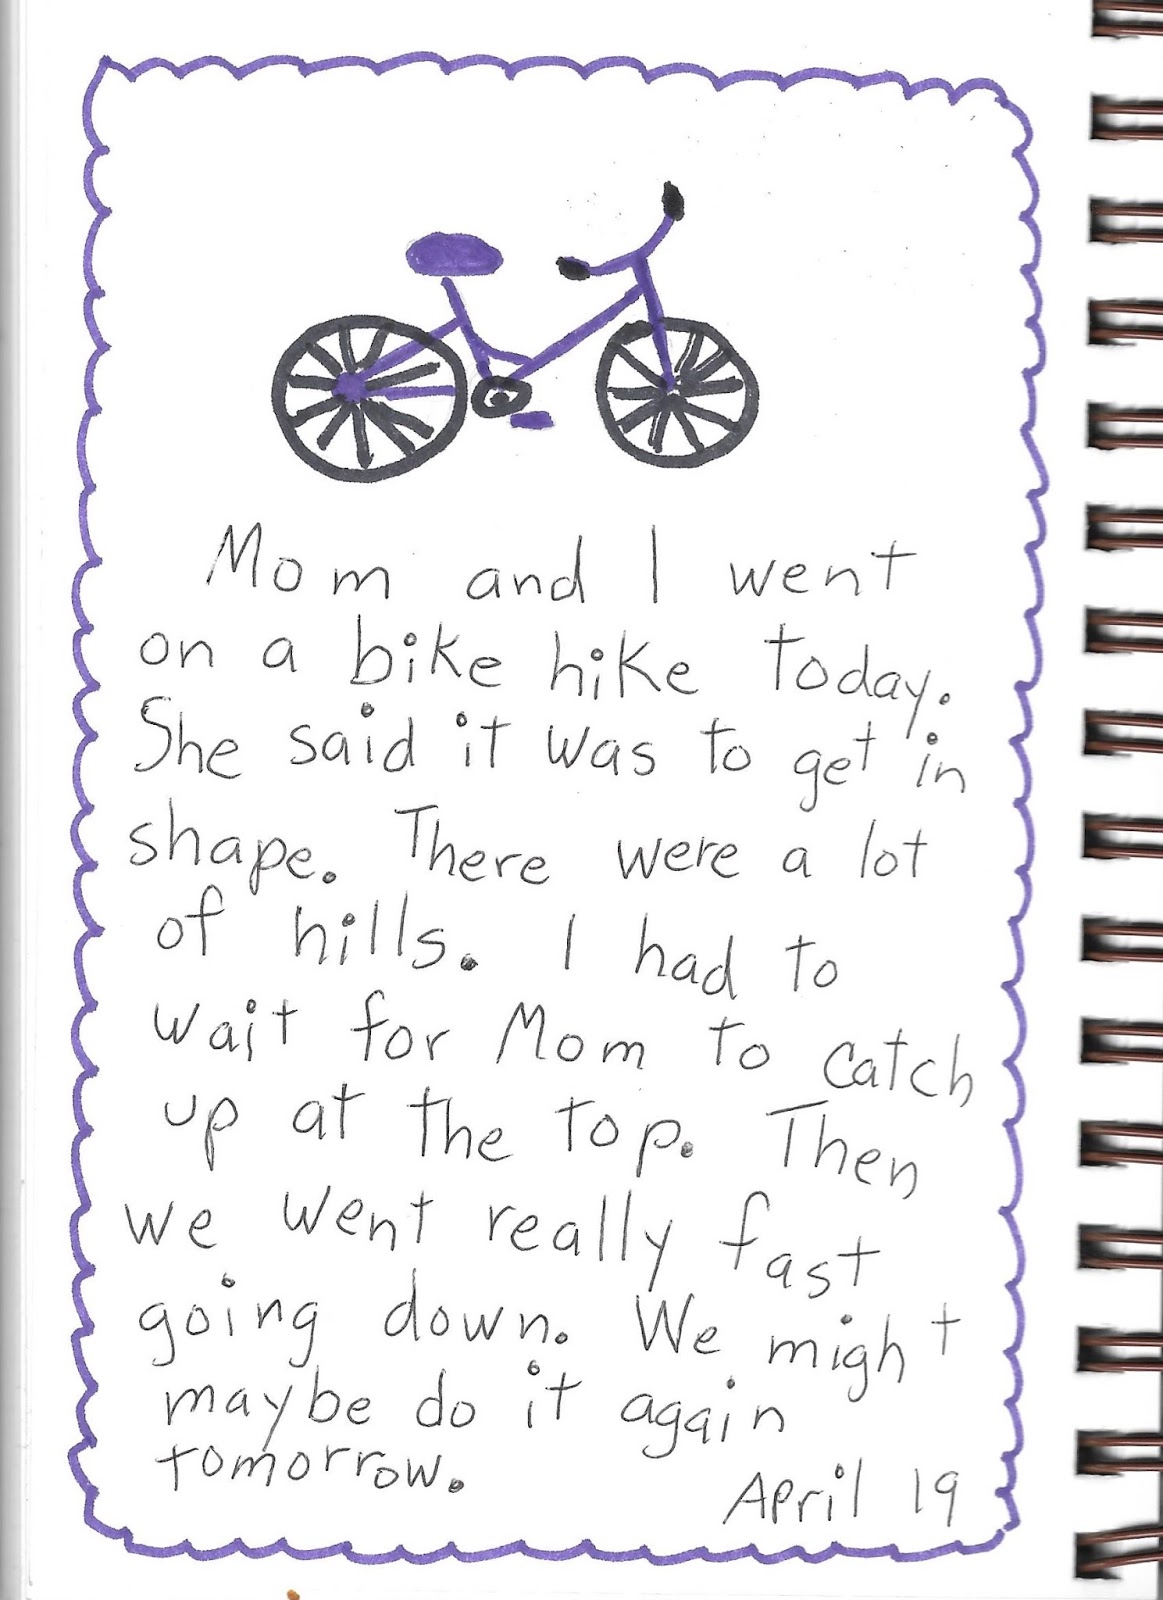 Mom and I went
on a bike hike today.
She said it was to get in
shape. There were a lot
of hills. I had to
wait for Mom to catch
up at the top. Then
we went really fast
going down. We might
maybe do it again
tomorrow.
April 19